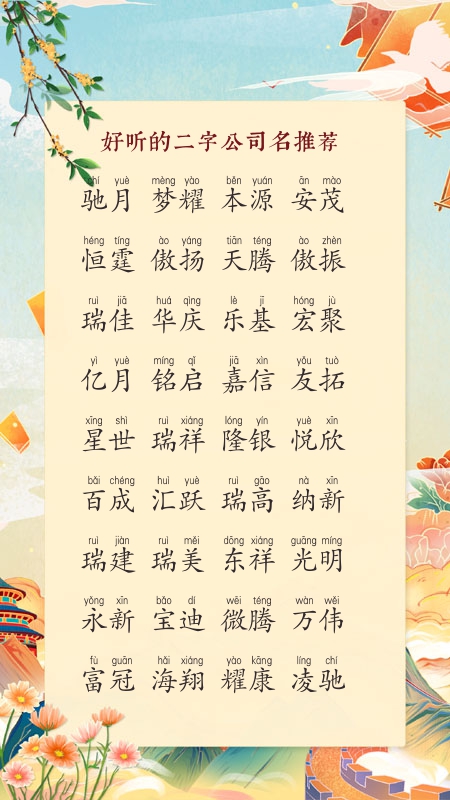 好听的二字公司名推荐
chí yuè mèng yào běn yuán ān mào
驰月 梦耀 本源 安茂
héng tíng ào yáng tiān téng ào zhèn
恒霆 傲扬 天腾 傲振
ruì jiā huá qìng lè jī hóng jù
瑞佳 华庆 乐基 宏聚
yì yuè míng qǐ jiā xìn yǒu tuò
亿月 铭启 嘉信 友拓
xīng shì ruì xiáng lóng yín yuè xīn
星世 瑞祥 隆银 悦欣
bǎi chéng huì yuè ruì gāo nà xīn
百成 汇跃 瑞高 纳新
ruì jiàn ruì měi dōng xiáng guāng míng
瑞建 瑞美 东祥 光明
yǒng xīn bǎo dí wēi téng wàn wěi
永新 宝迪 微腾 万伟
fù guān hǎi xiáng yào kāng líng chí
富冠 海翔 耀康 凌驰